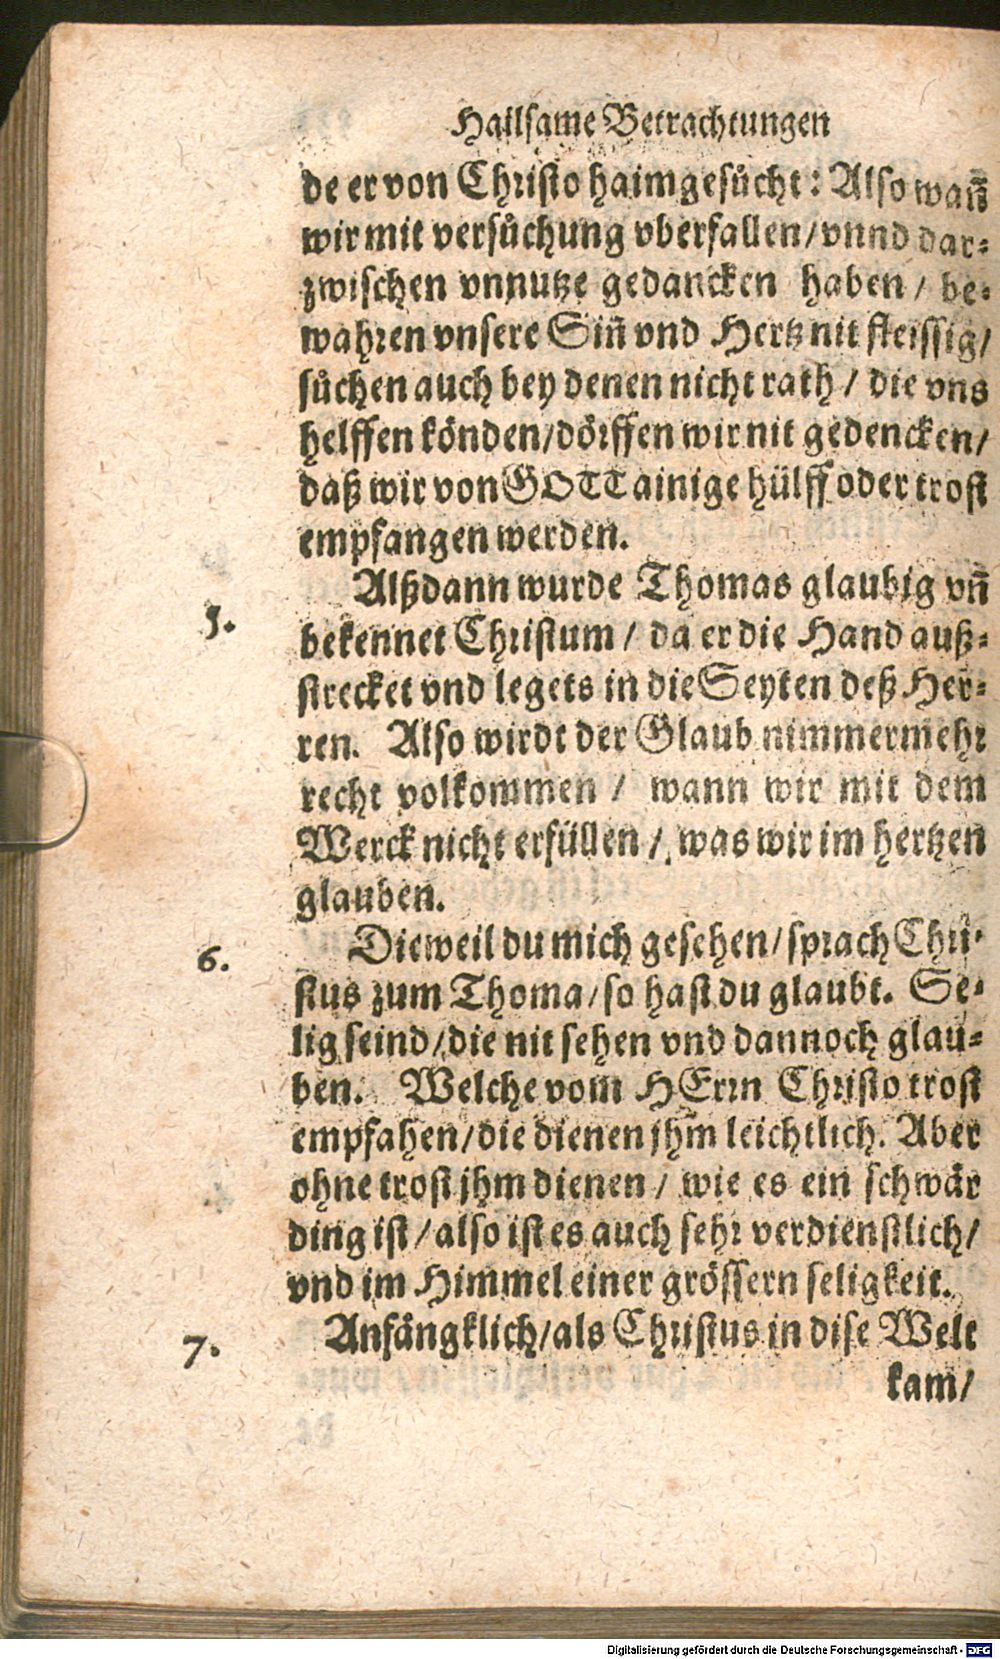 Hailsame Betrachtungen
de er von Christo haimgesůcht: Also wañ
wir mit versůchung vberfallen/vnnd dar-
zwischen vnnutze gedancken haben/ be-
wahren vnsere Siñ vnd Hertz nit fleissig/
sůchen auch bey denen nicht rath/ die vns
helffen könden/dörffen wir nit gedencken/
daß wir von GOTT ainige hülff oder trost
empfangen werden.
5. Alßdann wurde Thomas glaubig vñ
bekennet Christum/ da er die Hand auß-
strecket vnd legets in die Seyten deß Her-
ren. Also wirdt der Glaub nimmermehr
recht volkommen/ wann wir mit dem
Werck nicht erfüllen/ was wir im hertzen
glauben.
6. Dieweil du mich gesehen/sprach Chri-
stus zum Thoma/so hast du glaubt. Se-
lig seind/die nit sehen vnd dannoch glau-
ben. Welche vom HErrn Christo trost
empfahen/die dienen jhm leichtlich. Aber
ohne trost jhm dienen/ wie es ein schwär
ding ist/also ist es auch sehr verdienstlich/
vnd im Himmel einer grössern seligkeit.
7. Anfängklich/als Christus in dise Welt
kam/
Digitalisierung gefördert durch die Deutsche Forschungsgemeinschaft - DFG